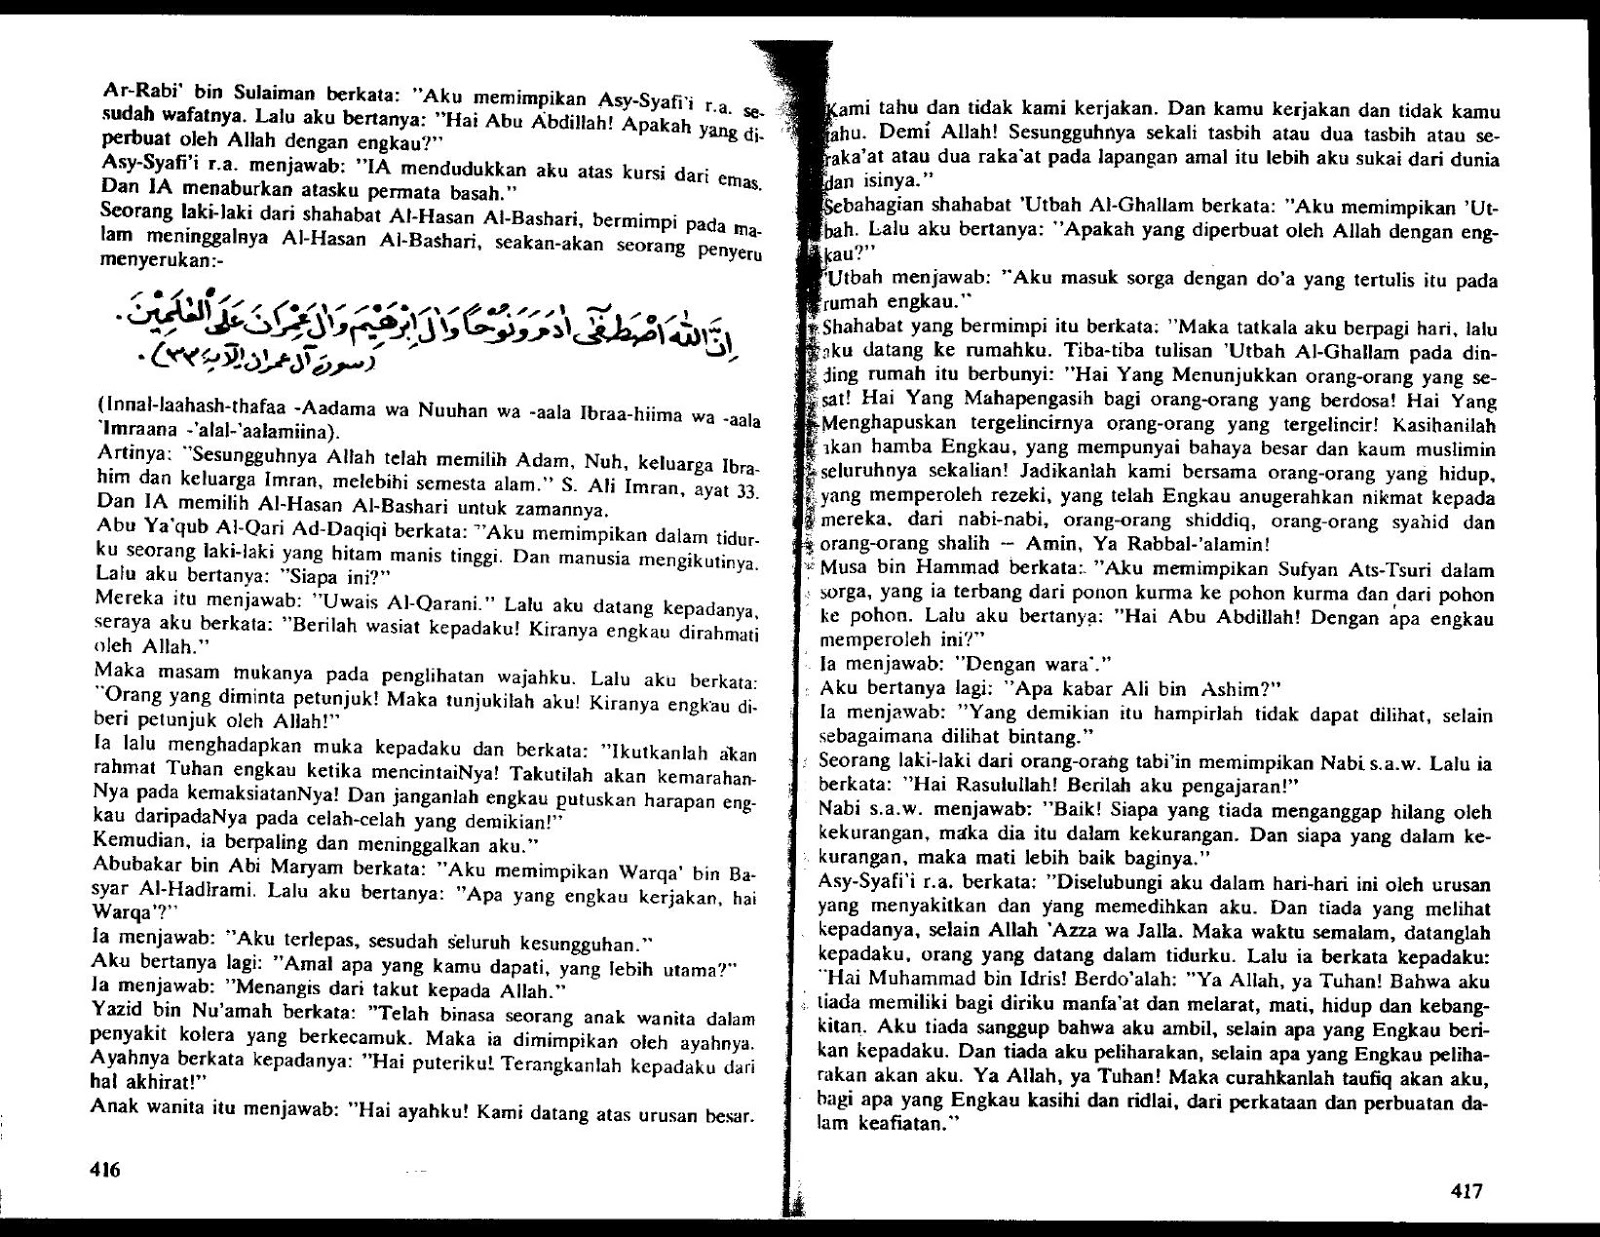 Ar-Rabi' bin Sulaiman berkata: "Aku memimpikan Asy-Syafi'i r.a. se-
sudah wafatnya. Lalu aku bertanya: "Hai Abu Abdillah! Apakah yang di-
perbuat oleh Allah dengan engkau?"
Asy-Syafi'i r.a. menjawab: "IA mendudukkan aku atas kursi dari emas.
Dan IA menaburkan atasku permata basah."
Seorang laki-laki dari shahabat Al-Hasan Al-Bashari, bermimpi pada ma-
lam meninggalnya Al-Hasan Al-Bashari, seakan-akan seorang penyeru
menyerukan:-
اِنَّ اللّٰهَ اصْطَفٰٓى اٰدَمَ وَنُوْحًا وَاٰلَ اِبْرٰهِيْمَ وَاٰلَ عِمْرَانَ عَلَى الْعٰلَمِيْنَ.
(سورة آل عمران الآية ٣٣).
(Innal-laahash-thafaa -Aadama wa Nuuhan wa -aala Ibraa-hiima wa -aala
'Imraana -'alal-'aalamiina).
Artinya: "Sesungguhnya Allah telah memilih Adam, Nuh, keluarga Ibra-
him dan keluarga Imran, melebihi semesta alam." S. Ali Imran, ayat 33.
Dan IA memilih Al-Hasan Al-Bashari untuk zamannya.
Abu Ya'qub Al-Qari Ad-Daqiqi berkata: "Aku memimpikan dalam tidur-
ku seorang laki-laki yang hitam manis tinggi. Dan manusia mengikutinya.
Lalu aku bertanya: "Siapa ini?"
Mereka itu menjawab: "Uwais Al-Qarani." Lalu aku datang kepadanya,
seraya aku berkata: "Berilah wasiat kepadaku! Kiranya engkau dirahmati
oleh Allah."
Maka masam mukanya pada penglihatan wajahku. Lalu aku berkata:
"Orang yang diminta petunjuk! Maka tunjukilah aku! Kiranya engkau di-
beri petunjuk oleh Allah!"
Ia lalu menghadapkan muka kepadaku dan berkata: "Ikutkanlah akan
rahmat Tuhan engkau ketika mencintaiNya! Takutilah akan kemarahan-
Nya pada kemaksiatanNya! Dan janganlah engkau putuskan harapan eng-
kau daripadaNya pada celah-celah yang demikian!"
Kemudian, ia berpaling dan meninggalkan aku."
Abubakar bin Abi Maryam berkata: "Aku memimpikan Warqa' bin Ba-
syar Al-Hadlrami. Lalu aku bertanya: "Apa yang engkau kerjakan, hai
Warqa'?"
Ia menjawab: "Aku terlepas, sesudah seluruh kesungguhan."
Aku bertanya lagi: "Amal apa yang kamu dapati, yang lebih utama?"
Ia menjawab: "Menangis dari takut kepada Allah."
Yazid bin Nu'amah berkata: "Telah binasa seorang anak wanita dalam
penyakit kolera yang berkecamuk. Maka ia dimimpikan oleh ayahnya.
Ayahnya berkata kepadanya: "Hai puteriku! Terangkanlah kepadaku dari
hal akhirat!"
Anak wanita itu menjawab: "Hai ayahku! Kami datang atas urusan besar.
416
Kami tahu dan tidak kami kerjakan. Dan kamu kerjakan dan tidak kamu
tahu. Demi Allah! Sesungguhnya sekali tasbih atau dua tasbih atau se-
raka'at atau dua raka'at pada lapangan amal itu lebih aku sukai dari dunia
dan isinya."
Sebahagian shahabat 'Utbah Al-Ghallam berkata: "Aku memimpikan 'Ut-
bah. Lalu aku bertanya: "Apakah yang diperbuat oleh Allah dengan eng-
kau?"
'Utbah menjawab: "Aku masuk sorga dengan do'a yang tertulis itu pada
rumah engkau."
Shahabat yang bermimpi itu berkata: "Maka tatkala aku berpagi hari, lalu
aku datang ke rumahku. Tiba-tiba tulisan 'Utbah Al-Ghallam pada din-
ding rumah itu berbunyi: "Hai Yang Menunjukkan orang-orang yang se-
sat! Hai Yang Mahapengasih bagi orang-orang yang berdosa! Hai Yang
Menghapuskan tergelincirnya orang-orang yang tergelincir! Kasihanilah
akan hamba Engkau, yang mempunyai bahaya besar dan kaum muslimin
seluruhnya sekalian! Jadikanlah kami bersama orang-orang yang hidup,
yang memperoleh rezeki, yang telah Engkau anugerahkan nikmat kepada
mereka, dari nabi-nabi, orang-orang shiddiq, orang-orang syahid dan
orang-orang shalih — Amin, Ya Rabbal-'alamin!
Musa bin Hammad berkata: "Aku memimpikan Sufyan Ats-Tsuri dalam
sorga, yang ia terbang dari pohon kurma ke pohon kurma dan dari pohon
ke pohon. Lalu aku bertanya: "Hai Abu Abdillah! Dengan apa engkau
memperoleh ini?"
Ia menjawab: "Dengan wara'."
Aku bertanya lagi: "Apa kabar Ali bin Ashim?"
Ia menjawab: "Yang demikian itu hampirlah tidak dapat dilihat, selain
sebagaimana dilihat bintang."
Seorang laki-laki dari orang-orang tabi'in memimpikan Nabi s.a.w. Lalu ia
berkata: "Hai Rasulullah! Berilah aku pengajaran!"
Nabi s.a.w. menjawab: "Baik! Siapa yang tiada menganggap hilang oleh
kekurangan, maka dia itu dalam kekurangan. Dan siapa yang dalam ke-
kurangan, maka mati lebih baik baginya."
Asy-Syafi'i r.a. berkata: "Diselubungi aku dalam hari-hari ini oleh urusan
yang menyakitkan dan yang memedihkan aku. Dan tiada yang melihat
kepadanya, selain Allah 'Azza wa Jalla. Maka waktu semalam, datanglah
kepadaku, orang yang datang dalam tidurku. Lalu ia berkata kepadaku:
"Hai Muhammad bin Idris! Berdo'alah: "Ya Allah, ya Tuhan! Bahwa aku
tiada memiliki bagi diriku manfa'at dan melarat, mati, hidup dan kebang-
kitan. Aku tiada sanggup bahwa aku ambil, selain apa yang Engkau beri-
kan kepadaku. Dan tiada aku peliharakan, selain apa yang Engkau peliha-
rakan akan aku. Ya Allah, ya Tuhan! Maka curahkanlah taufiq akan aku,
bagi apa yang Engkau kasihi dan ridlai, dari perkataan dan perbuatan da-
lam keafiatan."
417